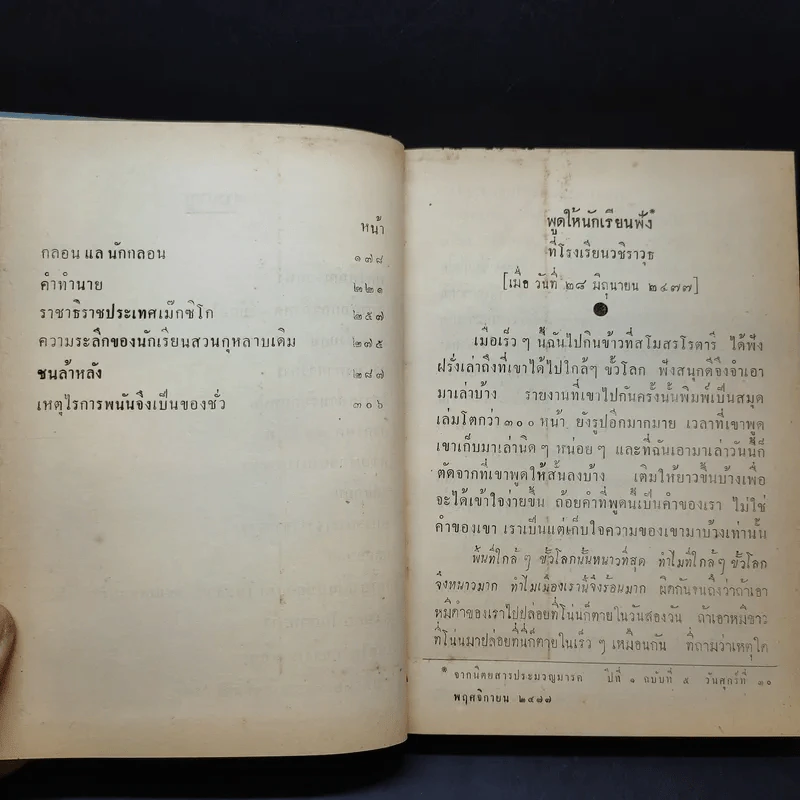 หน้า
กลอน แล นักกลอน ๑๗๘
คำทำนาย ๒๒๑
ราชาธิราชประเทศเม๊กซิโก ๒๕๗
ความระลึกของนักเรียนสวนกุหลาบเดิม ๒๗๕
ชนล้าหลัง ๒๘๗
เหตุไรการพนันจึงเป็นของชั่ว ๓๐๖
พูดให้นักเรียนฟัง*
ที่โรงเรียนวชิราวุธ
[เมื่อ วันที่ ๒๘ มิถุนายน ๒๔๗๗]
เมื่อเร็ว ๆ นี้ฉันไปกินข้าวที่สโมสรโรตารี ได้ฟัง
ฝรั่งเล่าถึงที่เขาได้ไปใกล้ๆ ขั้วโลก ฟังสนุกดีจึงจำเอา
มาเล่าบ้าง รายงานที่เขาไปกันครั้งนั้นพิมพ์เป็นสมุด
เล่มโตกว่า ๓๐๐ หน้า ยังรูปอีกมากมาย เวลาที่เขาพูด
เขาเก็บมาเล่านิด ๆ หน่อย ๆ และที่ฉันเอามาเล่าวันนี้ก็
ตัดจากที่เขาพูดให้สั้นลงบ้าง เติมให้ยาวขึ้นบ้างเพื่อ
จะได้เข้าใจง่ายขึ้น ถ้อยคำที่พูดนี้เป็นคำของเรา ไม่ใช่
คำของเขา เราเป็นแต่เก็บใจความของเขามาบ้างเท่านั้น
พ้นที่ใกล้ ๆ ขั้วโลกนั้นหนาวที่สุด ทำไมที่ใกล้ๆ ขั้วโลก
จึงหนาวมาก ทำไมเมืองเรานี้จึงร้อนมาก ผิดกันจนถึงว่าถ้าเอา
หมีดำของเราไปปล่อยที่โน่นก็ตายในวันสองวัน ถ้าเอาหมีขาว
ที่โน่นมาปล่อยที่นี่ก็ตายในเร็ว ๆ เหมือนกัน ที่ถามว่าเหตุใด
* จากนิตยสารประมวญมารค ปีที่ ๑ ฉบับที่ ๕ วันศุกร์ที่ ๓๐
พฤศจิกายน ๒๔๗๗